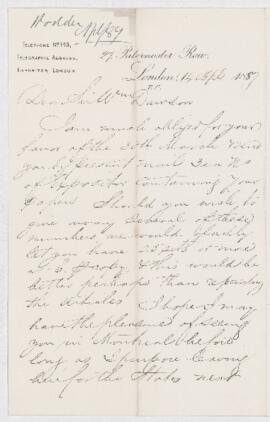 Hodder Apl/87
TELEPHONE No 113,
TELEGRAPHIC ADDRESS,
EXPOSITOR, LONDON.
27, Paternoster Row,
London, 14 Apl 1887
Dear Sir Wm Dawson
I am much obliged for your
favor of the 30th March
of Expositor containing your
papers Should you wish to
give away several of these
numbers, we would gladly
let you have 25 sets or more
& this would be
better perhaps than
the articles I hope I may
have the pleasure of seeing
you in Montreal before
long as I purpose leaving
here for the States next